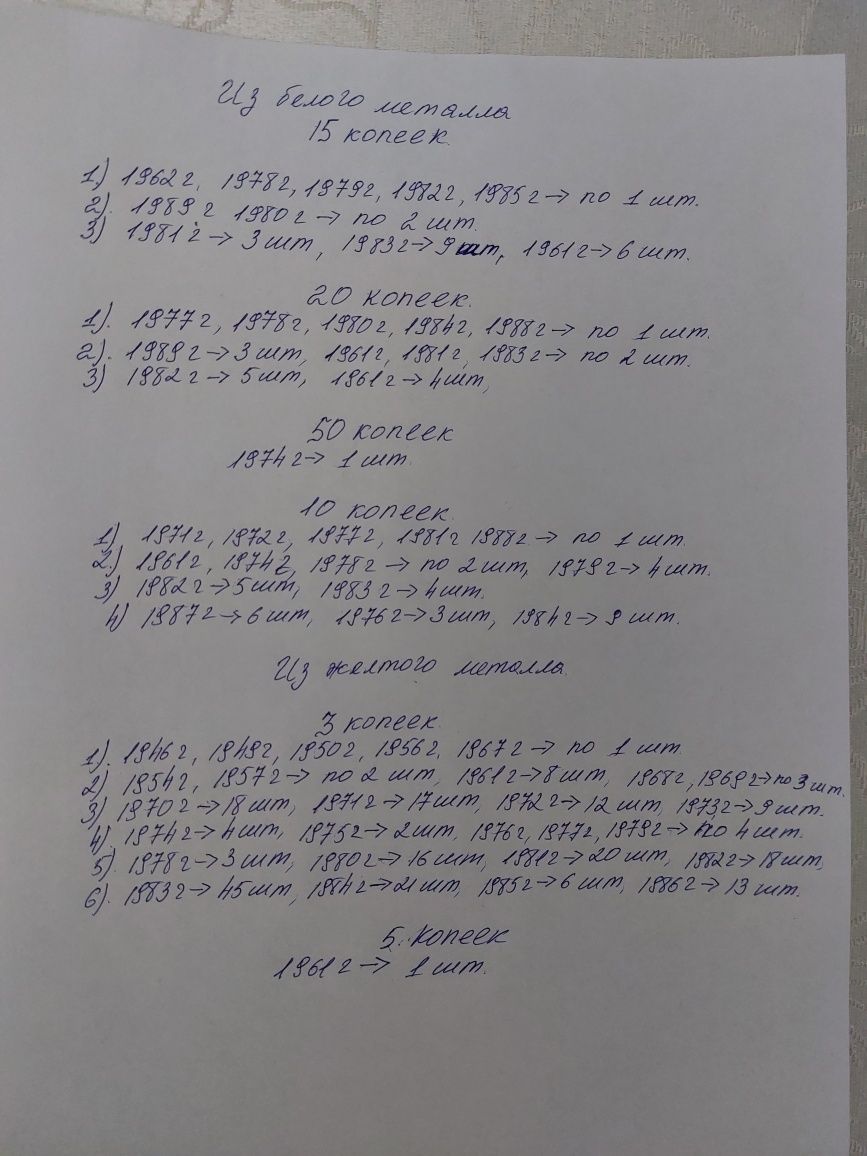 Из белого металла
15 копеек.
1) 1962 г, 1978 г, 1979 г, 1982 г, 1985 г → по 1 шт.
2). 1989 г 1980 г → по 2 шт.
3) 1981 г → 3 шт, 1983 г → 9 шт, 1961 г → 6 шт.
20 копеек.
1). 1977 г, 1978 г, 1980 г, 1984 г, 1988 г → по 1 шт.
2). 1989 г → 3 шт, 1961 г, 1981 г, 1983 г → по 2 шт.
3) 1982 г → 5 шт, 1961 г → 4 шт,
50 копеек
1974 г → 1 шт.
10 копеек.
1) 1971 г, 1972 г, 1977 г, 1981 г 1988 г → по 1 шт.
2.) 1961 г, 1974 г, 1978 г → по 2 шт, 1979 г → 4 шт.
3) 1982 г → 5 шт, 1983 г → 4 шт.
4) 1987 г → 6 шт, 1976 г → 3 шт, 1984 г → 9 шт.
Из желтого металла.
3 копеек.
1). 1946 г, 1949 г, 1950 г, 1956 г, 1967 г → по 1 шт.
2) 1954 г, 1957 г → по 2 шт, 1961 г → 8 шт, 1968 г, 1969 г → по 3 шт.
3) 1970 г → 18 шт, 1971 г → 17 шт, 1972 г → 12 шт, 1973 г → 9 шт.
4). 1974 г → 4 шт, 1975 г → 2 шт, 1976 г, 1977 г, 1979 г → по 4 шт.
5). 1978 г → 3 шт, 1980 г → 16 шт, 1981 г → 20 шт, 1982 г → 18 шт,
6). 1983 г → 45 шт, 1984 г → 21 шт, 1985 г → 6 шт, 1986 г → 13 шт.
5. Копеек
1961 г → 1 шт.